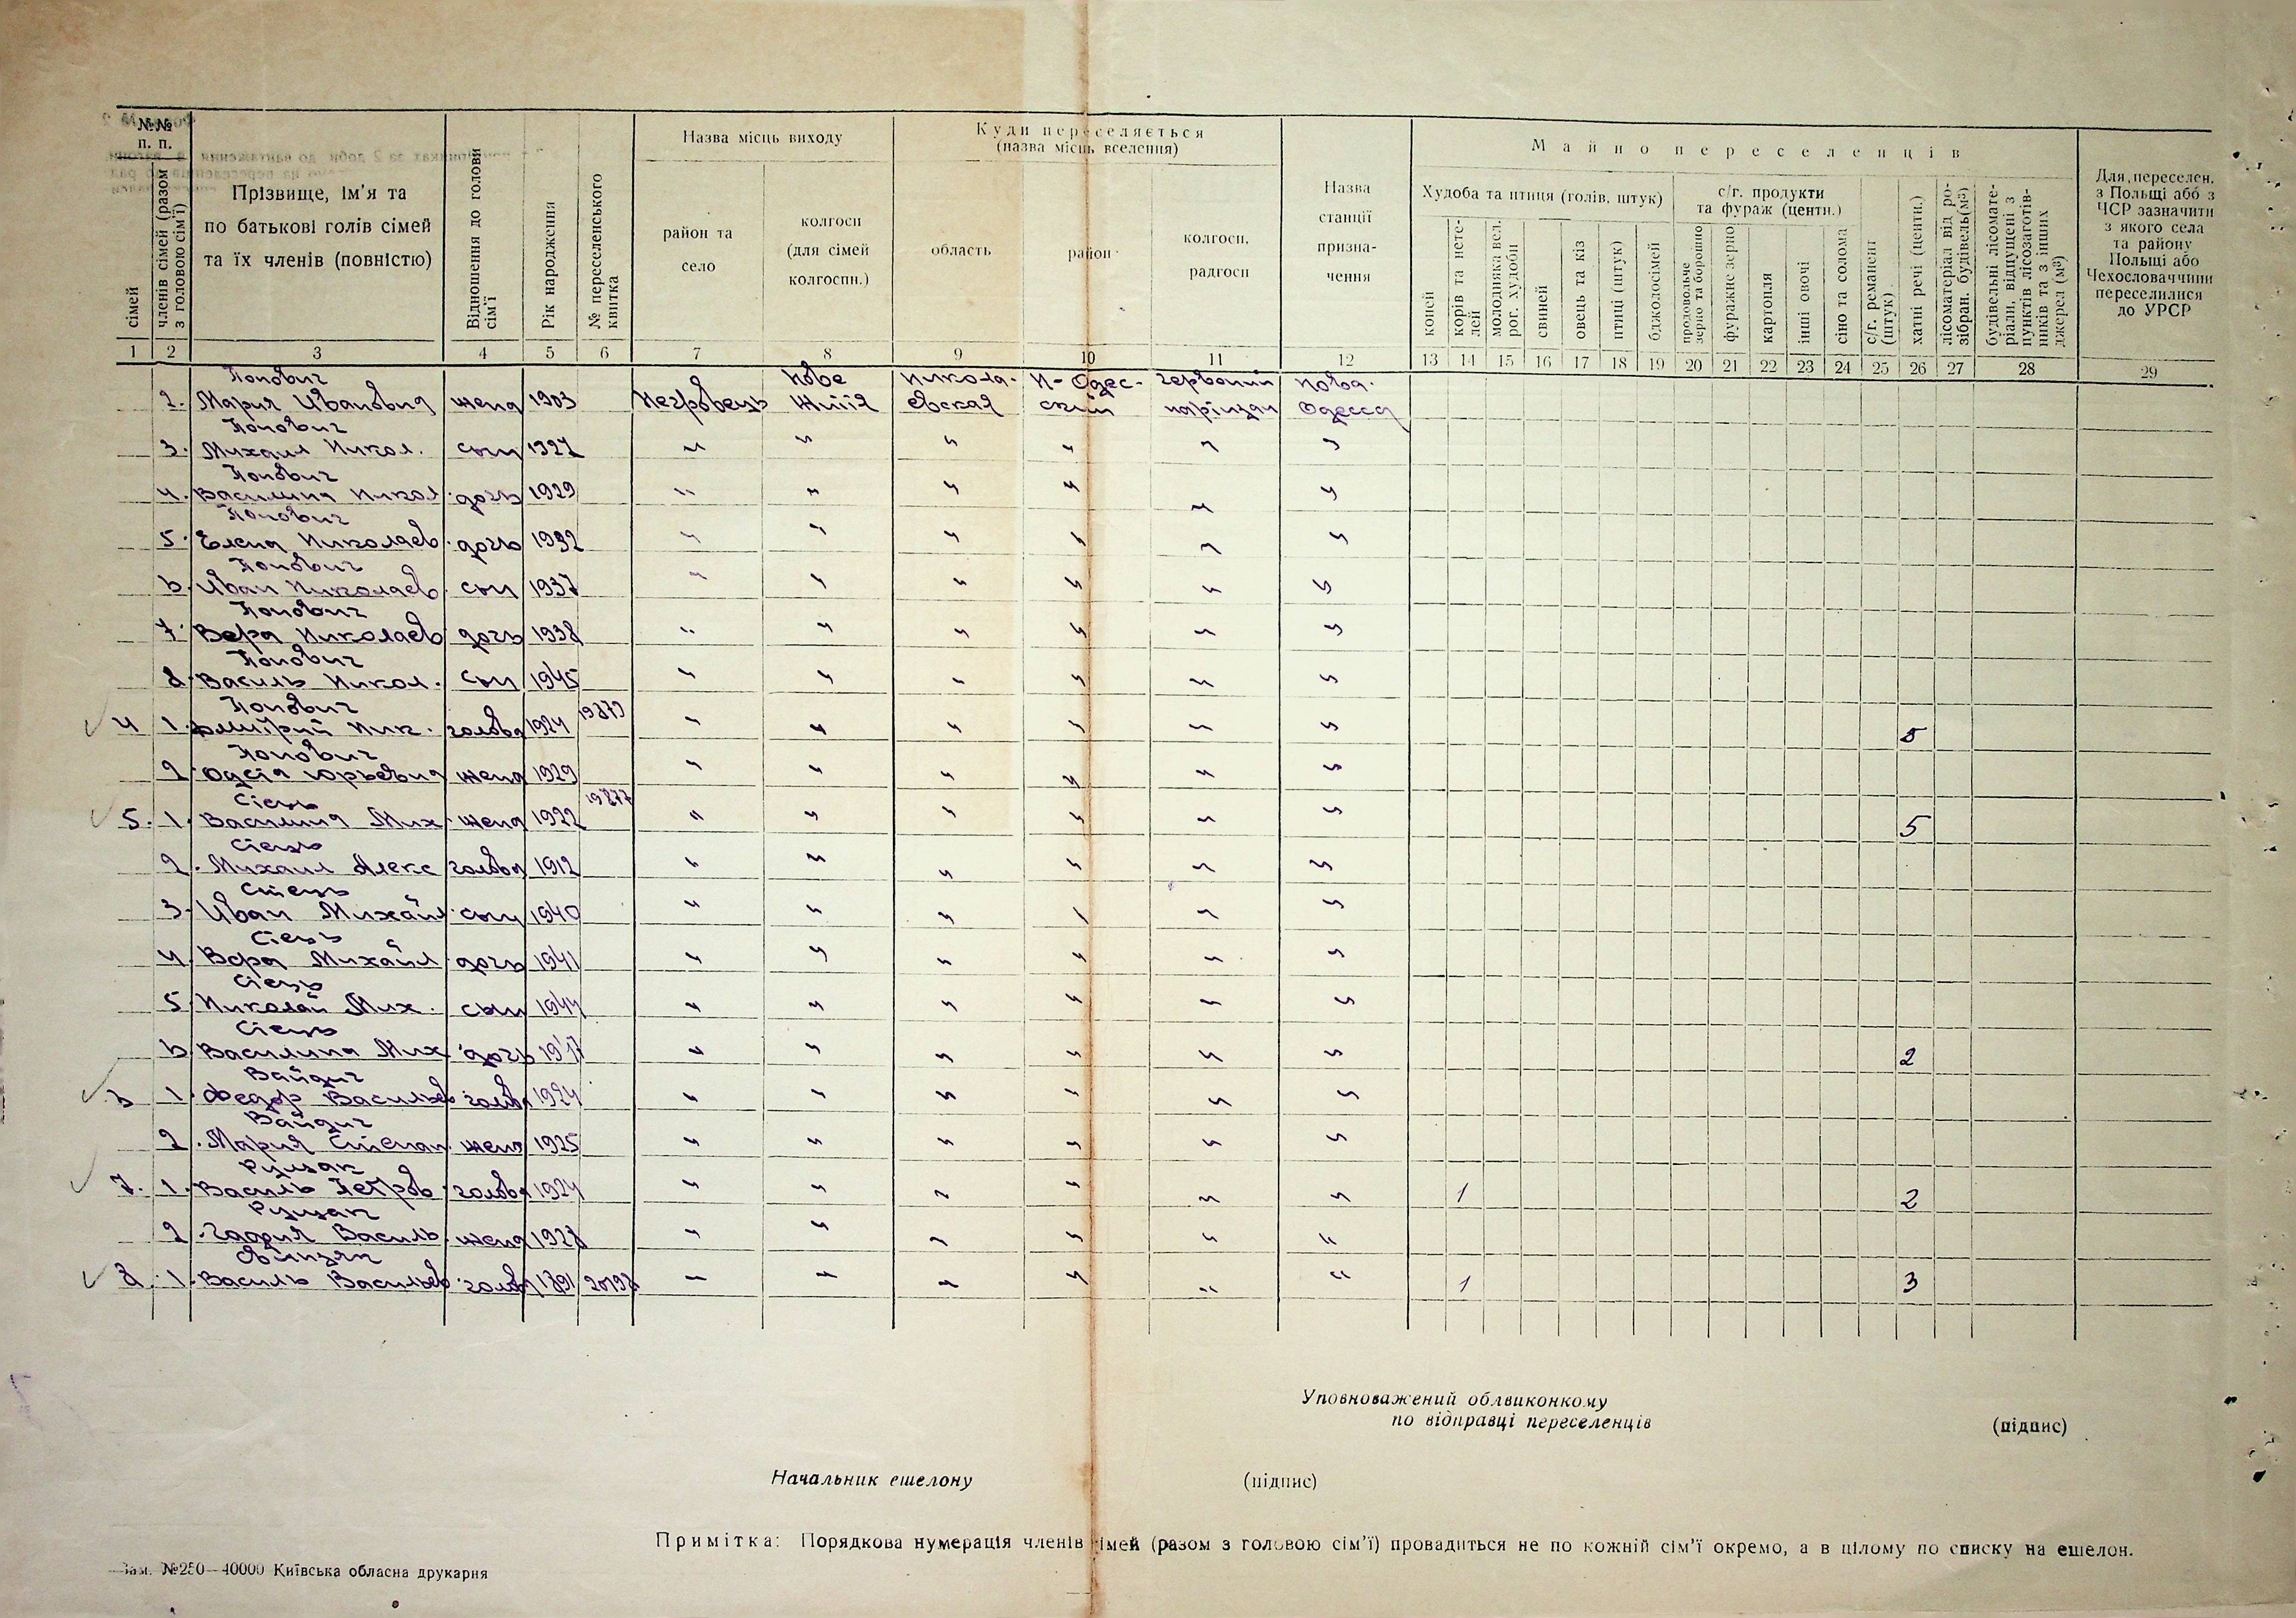 №№ п. п.
сімей
членів сімей (разом з головою сім'ї)
Прізвище, ім'я та по батькові голів сімей та їх членів (повністю)
Відношення до голови сім'ї
Рік народження
№ переселенського квитка
Назва місць виходу
район та село
колгосп (для сімей колгоспн.)
Куди переселяється (назва місць вселення)
область
район
колгосп, радгосп
Назва станції призначення
Майно переселенців
Худоба та птиця (голів, штук)
коней
корів та нетелей
молодняка вел. рог. худоби
свиней
овець та кіз
птиці (штук)
бджолосімей
с/г. продукти та фураж (центн.)
продовольче зерно та борошно
фуражне зерно
картопля
інші овочі
сіно та солома
с/г. реманент (штук)
хатні речі (центн.)
лісоматеріал від розібран. будівель (м³)
будівельні лісоматеріали, відпущені з пунктів лісозаготівників та з інших джерел (м³)
Для переселен. з Польщі або з ЧСР зазначити з якого села та району Польщі або Чехословаччини переселилися до УРСР
1 2 3 4 5 6 7 8 9 10 11 12 13 14 15 16 17 18 19 20 21 22 23 24 25 26 27 28 29
2. Попович Мария Ивановна жена 1903 Негровець Нове Життя Николаевская Н-Одесский червоний партизан Нова Одесса
3. Попович Михаил Никол. сын 1927 " " " " " "
4. Попович Василина Никол. дочь 1929 " " " " " "
5. Попович Елена Николаев. дочь 1932 " " " " " "
6 Попович Иван Николаев. сын 1937 " " " " " "
7. Попович Вера Николаев. дочь 1938 " " " " " "
8 Попович Василь Никол. сын 1945 " " " " " "
4 1. Попович Дмитрий Ник. голова 1924 19879 " " " " " " 5
2 Попович Юрьевна жена 1929 " " " " " "
5. 1. Василина Мих. жена 1922 19877 " " " " " " 5
2. Михаил Алекс голова 1912 " " " " " "
3. Иван Михайл. сын 1940 " " " " " "
4 Вера Михайл. дочь 1941 " " " " " "
5 Николай Мих. сын 1944 " " " " " "
6 Василина Мих. дочь " " " " " " 2
6 1. Вайдич Федор Васильев голова 1924 " " " " " "
2. Вайдич Мария Степан. жена 1925 " " " " " "
7. 1. Василь Петров. голова 1924 " " " " " " 1 2
2. Василь. жена 1928 " " " " " "
8. 1. Василь Васильев. голова 1891 20198 " " " " " " 1 3
Уповноважений облвиконкому
по відправці переселенців
(підпис)
Начальник ешелону
(підпис)
Примітка: Порядкова нумерація членів сімей (разом з головою сім'ї) провадиться не по кожній сім'ї окремо, а в цілому по списку на ешелон.
Зам. №250—40000 Київська обласна друкарня